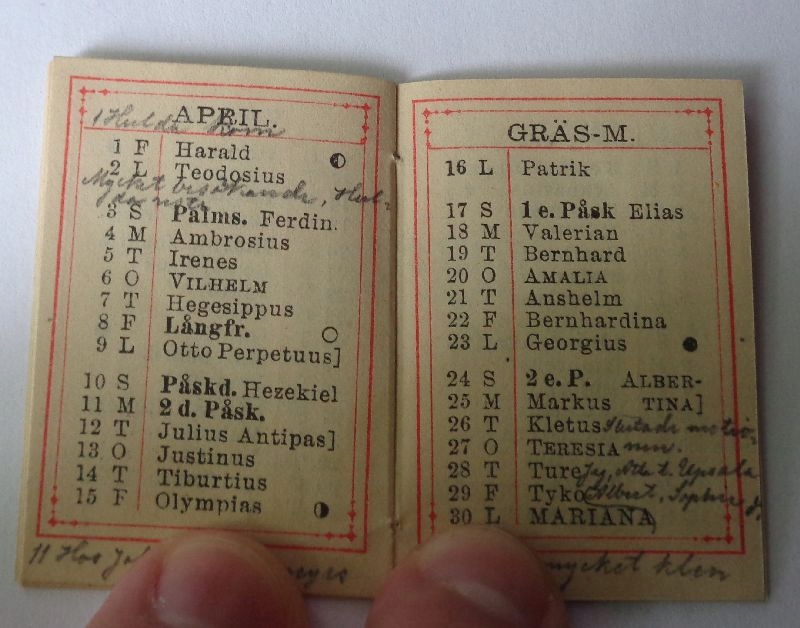 APRIL.
1 Hulda kom
1 F Harald
2 L Teodosius
Mycket besökande, Hul-
3 S Palms. Ferdin.
4 M Ambrosius
5 T Irenes
6 O VILHELM
7 T Hegesippus
8 F Långfr.
9 L Otto Perpetuus]
10 S Påskd. Hezekiel
11 M 2 d. Påsk.
12 T Julius Antipas]
13 O Justinus
14 T Tiburtius
15 F Olympias
11 Hos
GRÄS-M.
16 L Patrik
17 S 1 e. Påsk Elias
18 M Valerian
19 T Bernhard
20 O AMALIA
21 T Anshelm
22 F Bernhardina
23 L Georgius
24 S 2 e. P. ALBER-
25 M Markus TINA]
26 T Kletus
27 O TERESIA
28 T Ture Jag, Atle t. Upsala
29 F Tyko Albert, Sophie
30 L MARIANA
mycket klen